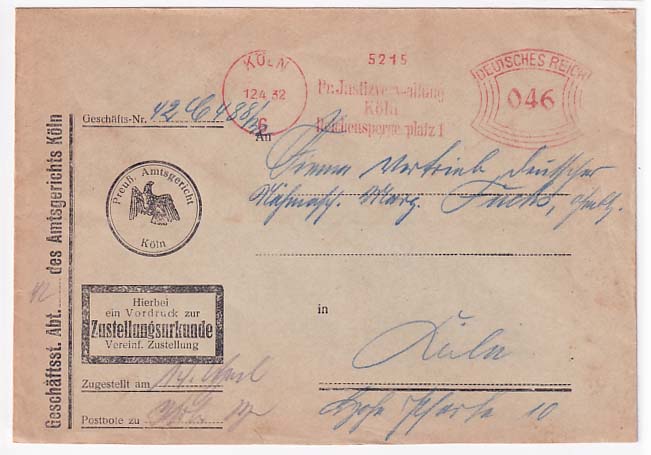 Geschäftsst. Abt. 42 des Amtsgerichts Köln
KÖLN
12.4.32
5215
Pr. Justizverwaltung
Köln
Reichensperge platz 1
DEUTSCHES REICH
046
Geschäfts-Nr. 42 C 488/32
An
Firma Vertrieb deutscher
Nähmasch. Marg. Fuchs,
Preuß. Amtsgericht
Köln
Hierbei
ein Vordruck zur
Zustellungsurkunde
Vereinf. Zustellung
in
Köln
Hohe Pforte 10
Zugestellt am 14. April
Postbote zu